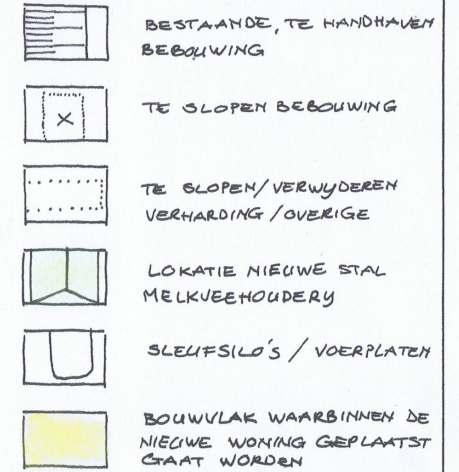 BESTAANDE, TE HANDHAVEN
BEBOUWING
TE SLOPEN BEBOUWING
TE SLOPEN/VERWYDEREN
VERHARDING/OVERIGE
LOKATIE NIEUWE STAL
MELKVEEHOUDERY
SLEUFSILO'S / VOERPLATEN
BOUWVLAK WAARBINNEN DE
NIEUWE WONING GEPLAATST
GAAT WORDEN